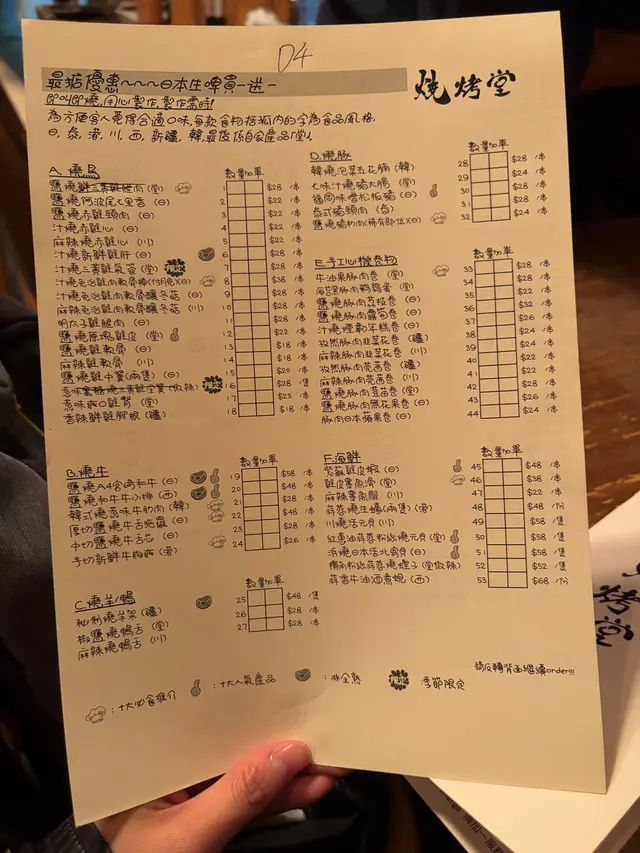 D4
最抵優惠~~~日本生啤買一送一
燒烤堂
即叫即燒,用心製作,製作需時!
為方便客人覓得合適口味,每款食物括弧內的字為食品風格,
日,泰,港,川,西,新疆,韓,最後係自家產品「堂」
A. 燒鳥
數量 加單
1 $28 /串
鹽燒阿波尾七里香 (日) 2 $22 /串
鹽燒赤雞頸肉 (日) 3 $22 /串
汁燒赤雞心 (日) 4 $22 /串
麻辣燒赤雞心 (川) 5 $22 /串
汁燒新鮮雞肝 (日) 6 $28 /串
汁燒三黃雞氣管 (堂) 7 $28 /串
汁燒免治雞肉軟骨棒(付月見) (日) 8 $38 /串
汁燒免治雞肉軟骨釀冬菇 (日) 9 $28 /串
麻辣免治雞肉軟骨釀冬菇 (川) 10 $28 /串
明太子雞腿肉 (日) 11 $28 /串
鹽燒原塊雞皮 (堂) 12 $22 /串
鹽燒雞軟骨 (日) 13 $18 /串
麻辣雞軟骨 (川) 14 $18 /串
鹽燒雞中翼(兩隻) (日) 15 $20 /串
16 $28 /隻
惹味雞腎 (堂) 17 $23 /串
香辣鮮雞腳根 (疆) 18 $18 /串
B. 燒牛
數量 加單
鹽燒A4宮崎和牛 (日) 19 $58 /串
鹽燒和牛牛小排 (西) 20 $58 /串
韓式燒惹味牛肋肉 (韓) 21 $48 /串
厚切鹽燒牛舌 (日) 22 $28 /串
中切鹽燒牛舌芯 (日) 23 $28 /串
手切新鮮牛胸 (港) 24 $26 /串
C. 燒羊/鴨
數量 加單
秘制燒羊架 (疆) 25 $48 /隻
椒鹽燒鴨舌 (堂) 26 $28 /串
麻辣燒鴨舌 (川) 27 $28 /串
D. 燒豚
數量 加單
韓燒泡菜五花腩 (韓) 28 $28 /串
七味汁燒豬大腸 (堂) 29 $28 /串
福岡味噌松板豬 (日) 30 $28 /串
泰式豬頸肉 (泰) 31 $28 /串
鹽燒豬肋肉(稀有部位) (日) 32 $24 /串
E. 手工心機卷物
數量 加單
牛油果豚肉卷 (堂) 33 $28 /串
海苔豚肉鵪鶉蛋 (堂) 34 $28 /串
鹽燒豚肉荔枝卷 (日) 35 $28 /串
鹽燒豚肉蘿蔔卷 (日) 36 $22 /串
汁燒煙彰年糕卷 (日) 37 $26 /串
孜然豚肉韮菜花卷 (疆) 38 $24 /串
麻辣豚肉韮菜花卷 (川) 39 $24 /串
孜然豚肉芫茜卷 (疆) 40 $22 /串
麻辣豚肉芫茜卷 (川) 41 $22 /串
鹽燒豚肉豆苗卷 (日) 42 $22 /串
鹽燒豚肉無花果卷 (日) 43 $26 /串
豚肉日本蘋果卷 (日) 44 $24 /串
F. 海鮮
數量 加單
紫蘇雞皮蝦 (日) 45 $48 /串
雞皮鱈魚滑 (堂) 46 $38 /串
麻辣鱈魚 (川) 47 $22 /串
蒜蓉燒生蠔(兩隻) (港) 48 $48 /份
川燒活元貝 (川) 49 $58 /隻
紅蔥油蒜蓉粉絲燒元貝 (堂) 50 $58 /隻
浜燒日本活北寄貝 (日) 51 $58 /隻
粉絲蒜蓉燒蟶子 (堂微辣) 52 $52 /隻
蒜香牛油酒煮蜆 (西) 53 $68 /份
請反轉背面繼續order!!!
:十大必食推介
:十大人氣產品
:非全熟
:季節限定